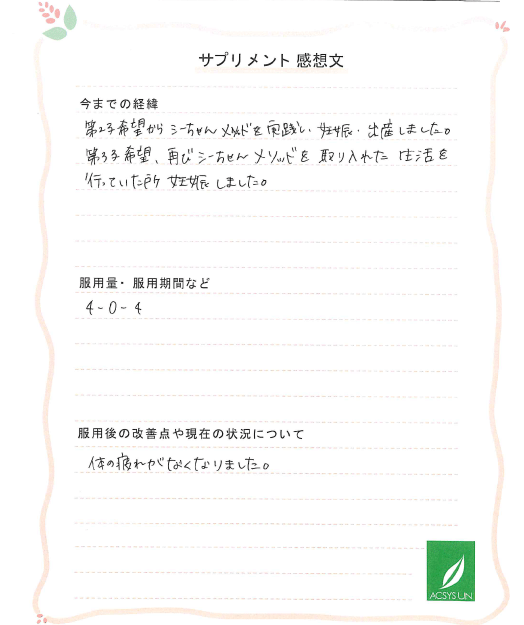 サプリメント 感想文
今までの経緯
第2子希望からシーちゃんメソッドを実践し、妊娠・出産しました。
第3子希望、再びシーちゃんメソッドを取り入れた生活を
行っていた所妊娠しました。
服用量・服用期間など
4-0-4
服用後の改善点や現在の状況について
体の疲れがなくなりました。
ACSYS UN